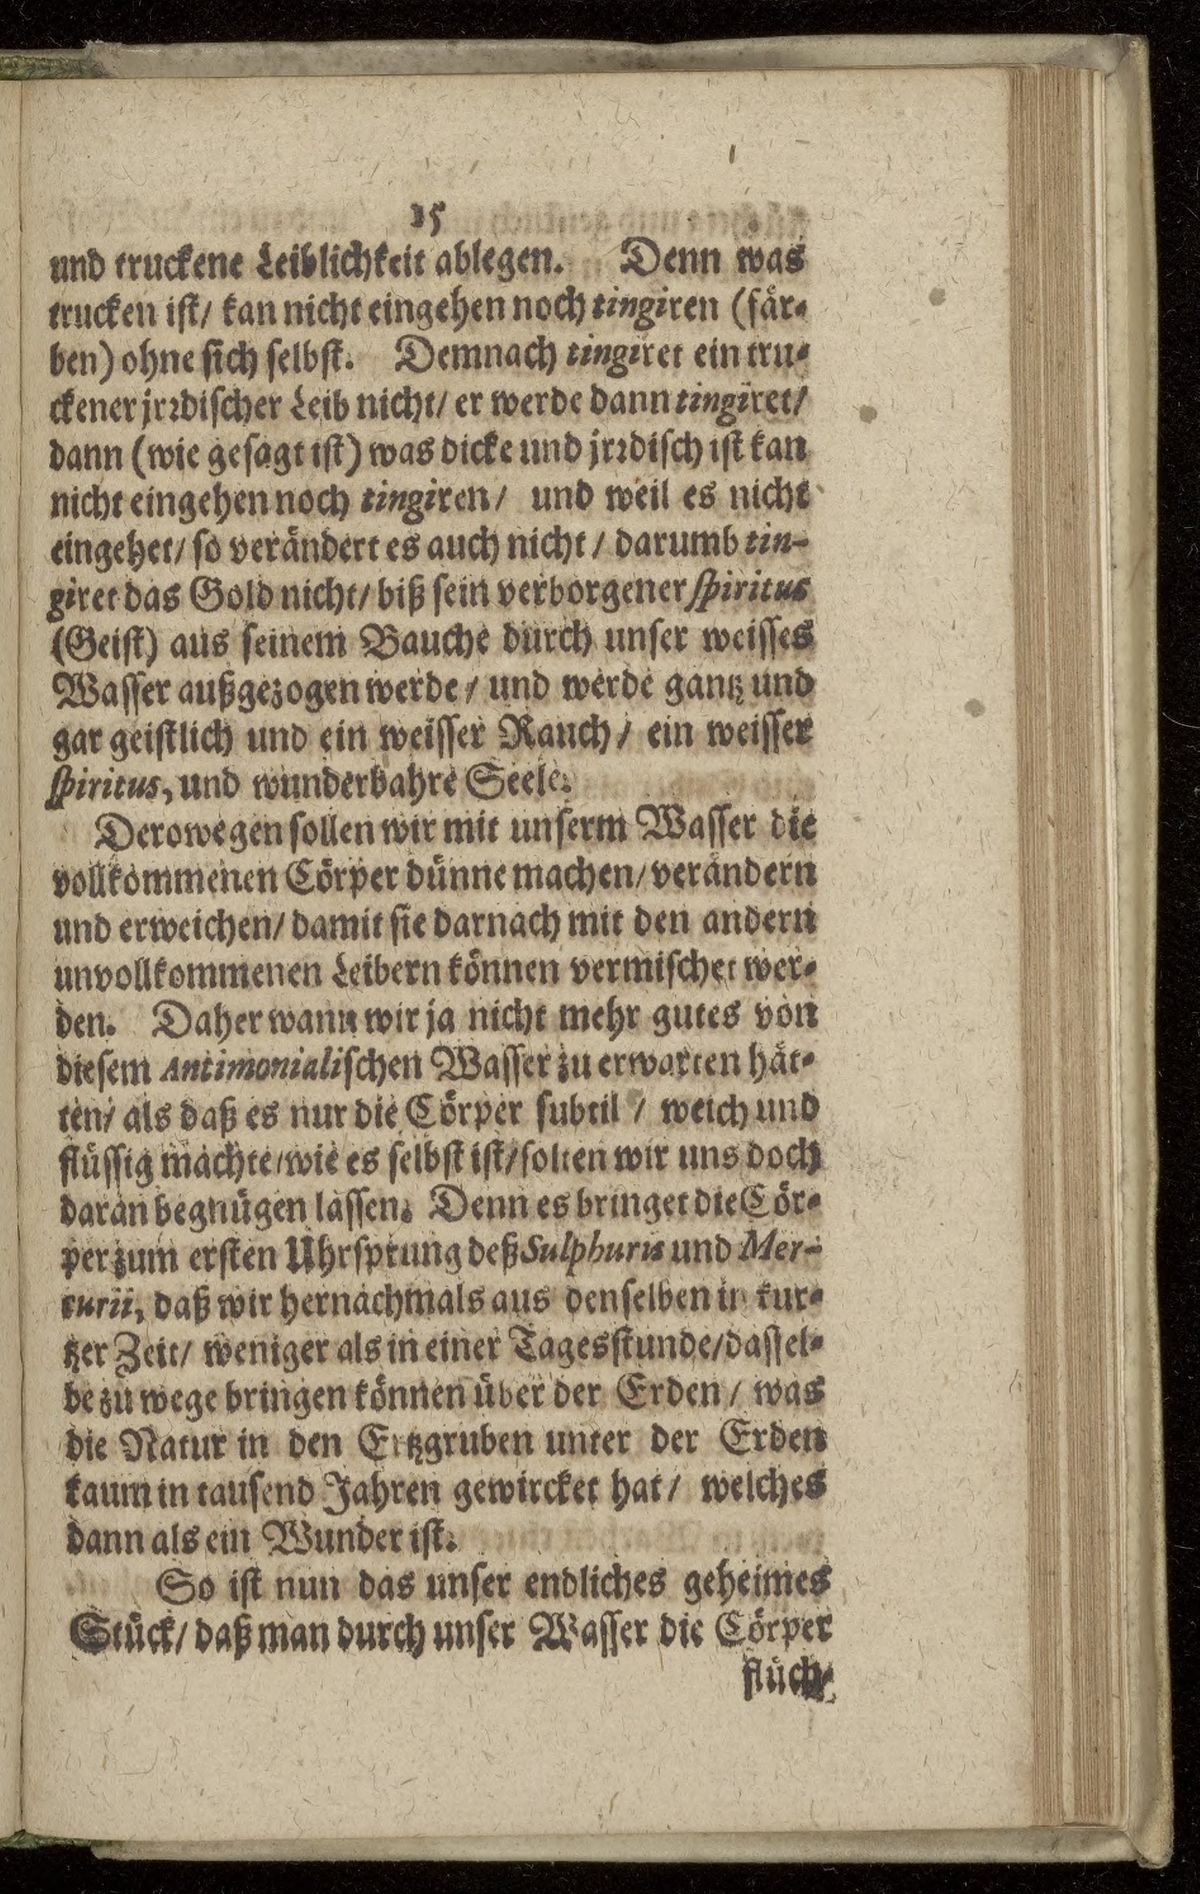 15
und truckene Leiblichkeit ablegen. Denn was
trucken ist/ kan nicht eingehen noch tingiren (fär-
ben) ohne sich selbst. Demnach tingiret ein tru-
ckener jrrdischer Leib nicht/ er werde dann tingiret/
dann (wie gesagt ist) was dicke und jrrdisch ist kan
nicht eingehen noch tingiren/ und weil es nicht
eingehet/ so verändert es auch nicht/ darumb tin-
giret das Gold nicht/ biß sein verborgener spiritus
(Geist) aus seinem Bauche durch unser weisses
Wasser außgezogen werde/ und werde gantz und
gar geistlich und ein weisser Rauch/ ein weisser
spiritus, und wunderbahre Seele.
Derowegen sollen wir mit unserm Wasser die
vollkommenen Cörper dünne machen/ verändern
und erweichen/ damit sie darnach mit den andern
unvollkommenen Leibern können vermischet wer-
den. Daher wann wir ja nicht mehr gutes von
diesem Antimonialischen Wasser zu erwarten hät-
ten/ als daß es nur die Cörper subtil/ weich und
flüssig machte/ wie es selbst ist/ solten wir uns doch
daran begnügen lassen. Denn es bringet die Cör-
per zum ersten Uhrsprung deß Sulphuris und Mer-
curii, daß wir hernachmals aus denselben in kur-
tzer Zeit/ weniger als in einer Tagesstunde/ dassel-
be zu wege bringen können über der Erden/ was
die Natur in den Ertzgruben unter der Erden
kaum in tausend Jahren gewircket hat/ welches
dann als ein Wunder ist.
So ist nun das unser endliches geheimes
Stück/ daß man durch unser Wasser die Cörper
flüch-